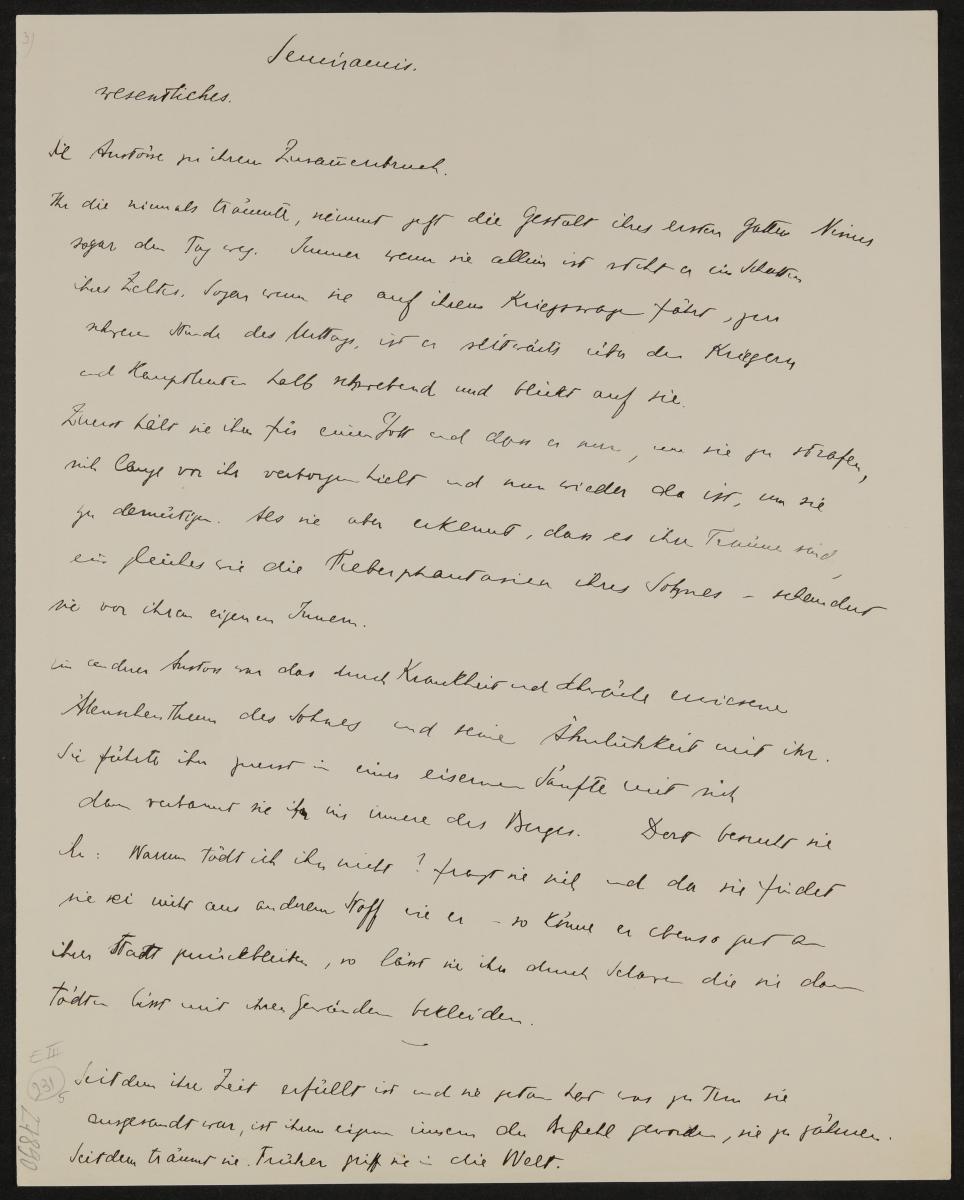 3)
Semiramis.
wesentliches.
Die Anstösse zu ihrem Zusammenbruch.
Ihr die niemals träumte, nimmt jetzt die Gestalt ihres ersten Gatten Ninus
sogar den Tag weg. Immer wenn sie allein ist steht er im Schatten
ihres Zeltes. Sogar wenn sie auf ihrem Kriegswagen fährt, zur
schweren Stunde des Mittags, ist er seitwärts über den Kriegern
und Hauptleuten halb schwebend und blickt auf sie.
Zuerst hält sie ihn für einen Gott und dass er nur, um sie zu strafen,
sich lange vor ihr verborgen hielt und nun wieder da ist, um sie
zu demütigen. Als sie aber erkennt, dass es ihre Träume sind,
ein gleiches wie die Fieberphantasien ihres Sohnes – schaudert
sie vor ihrem eigenen Innern.
ein andrer Anstoss war das durch Krankheit und Schwäche erwiesene
Menschenthum des Sohnes und seine Ähnlichkeit mit ihr.
Sie führte ihn zuerst in einer eisernen Sänfte mit sich
dann verbannt sie ihn ins innere des Berges. Dort besucht sie
ihn: Warum tödt ich ihn nicht? fragt sie sich und da sie findet
sie sei nicht aus anderem Stoff wie er – so könne er ebenso gut an
ihrer Statt zurückbleiben, so lässt sie ihn durch Sclaven die sie dann
tödten lässt mit ihren Gewändern bekleiden.
Seitdem ihre Zeit erfüllt ist und sie getan hat was zu Thun sie
ausgesandt war, ist ihrem eigenen innern der Befehl geworden, sie zu zähmen.
Seitdem träumt sie. Früher griff sie in die Welt.
E III
231
5
27890